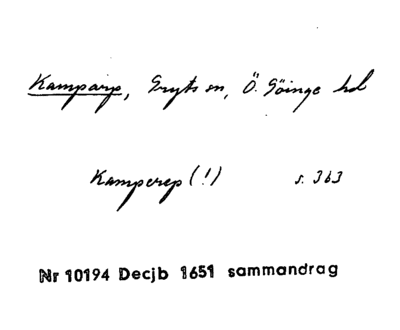 Kamparp, Gryts sn, Ö. Göinge hd
Kamperep (!) s. 363
Nr 10194 Decjb 1651 sammandrag